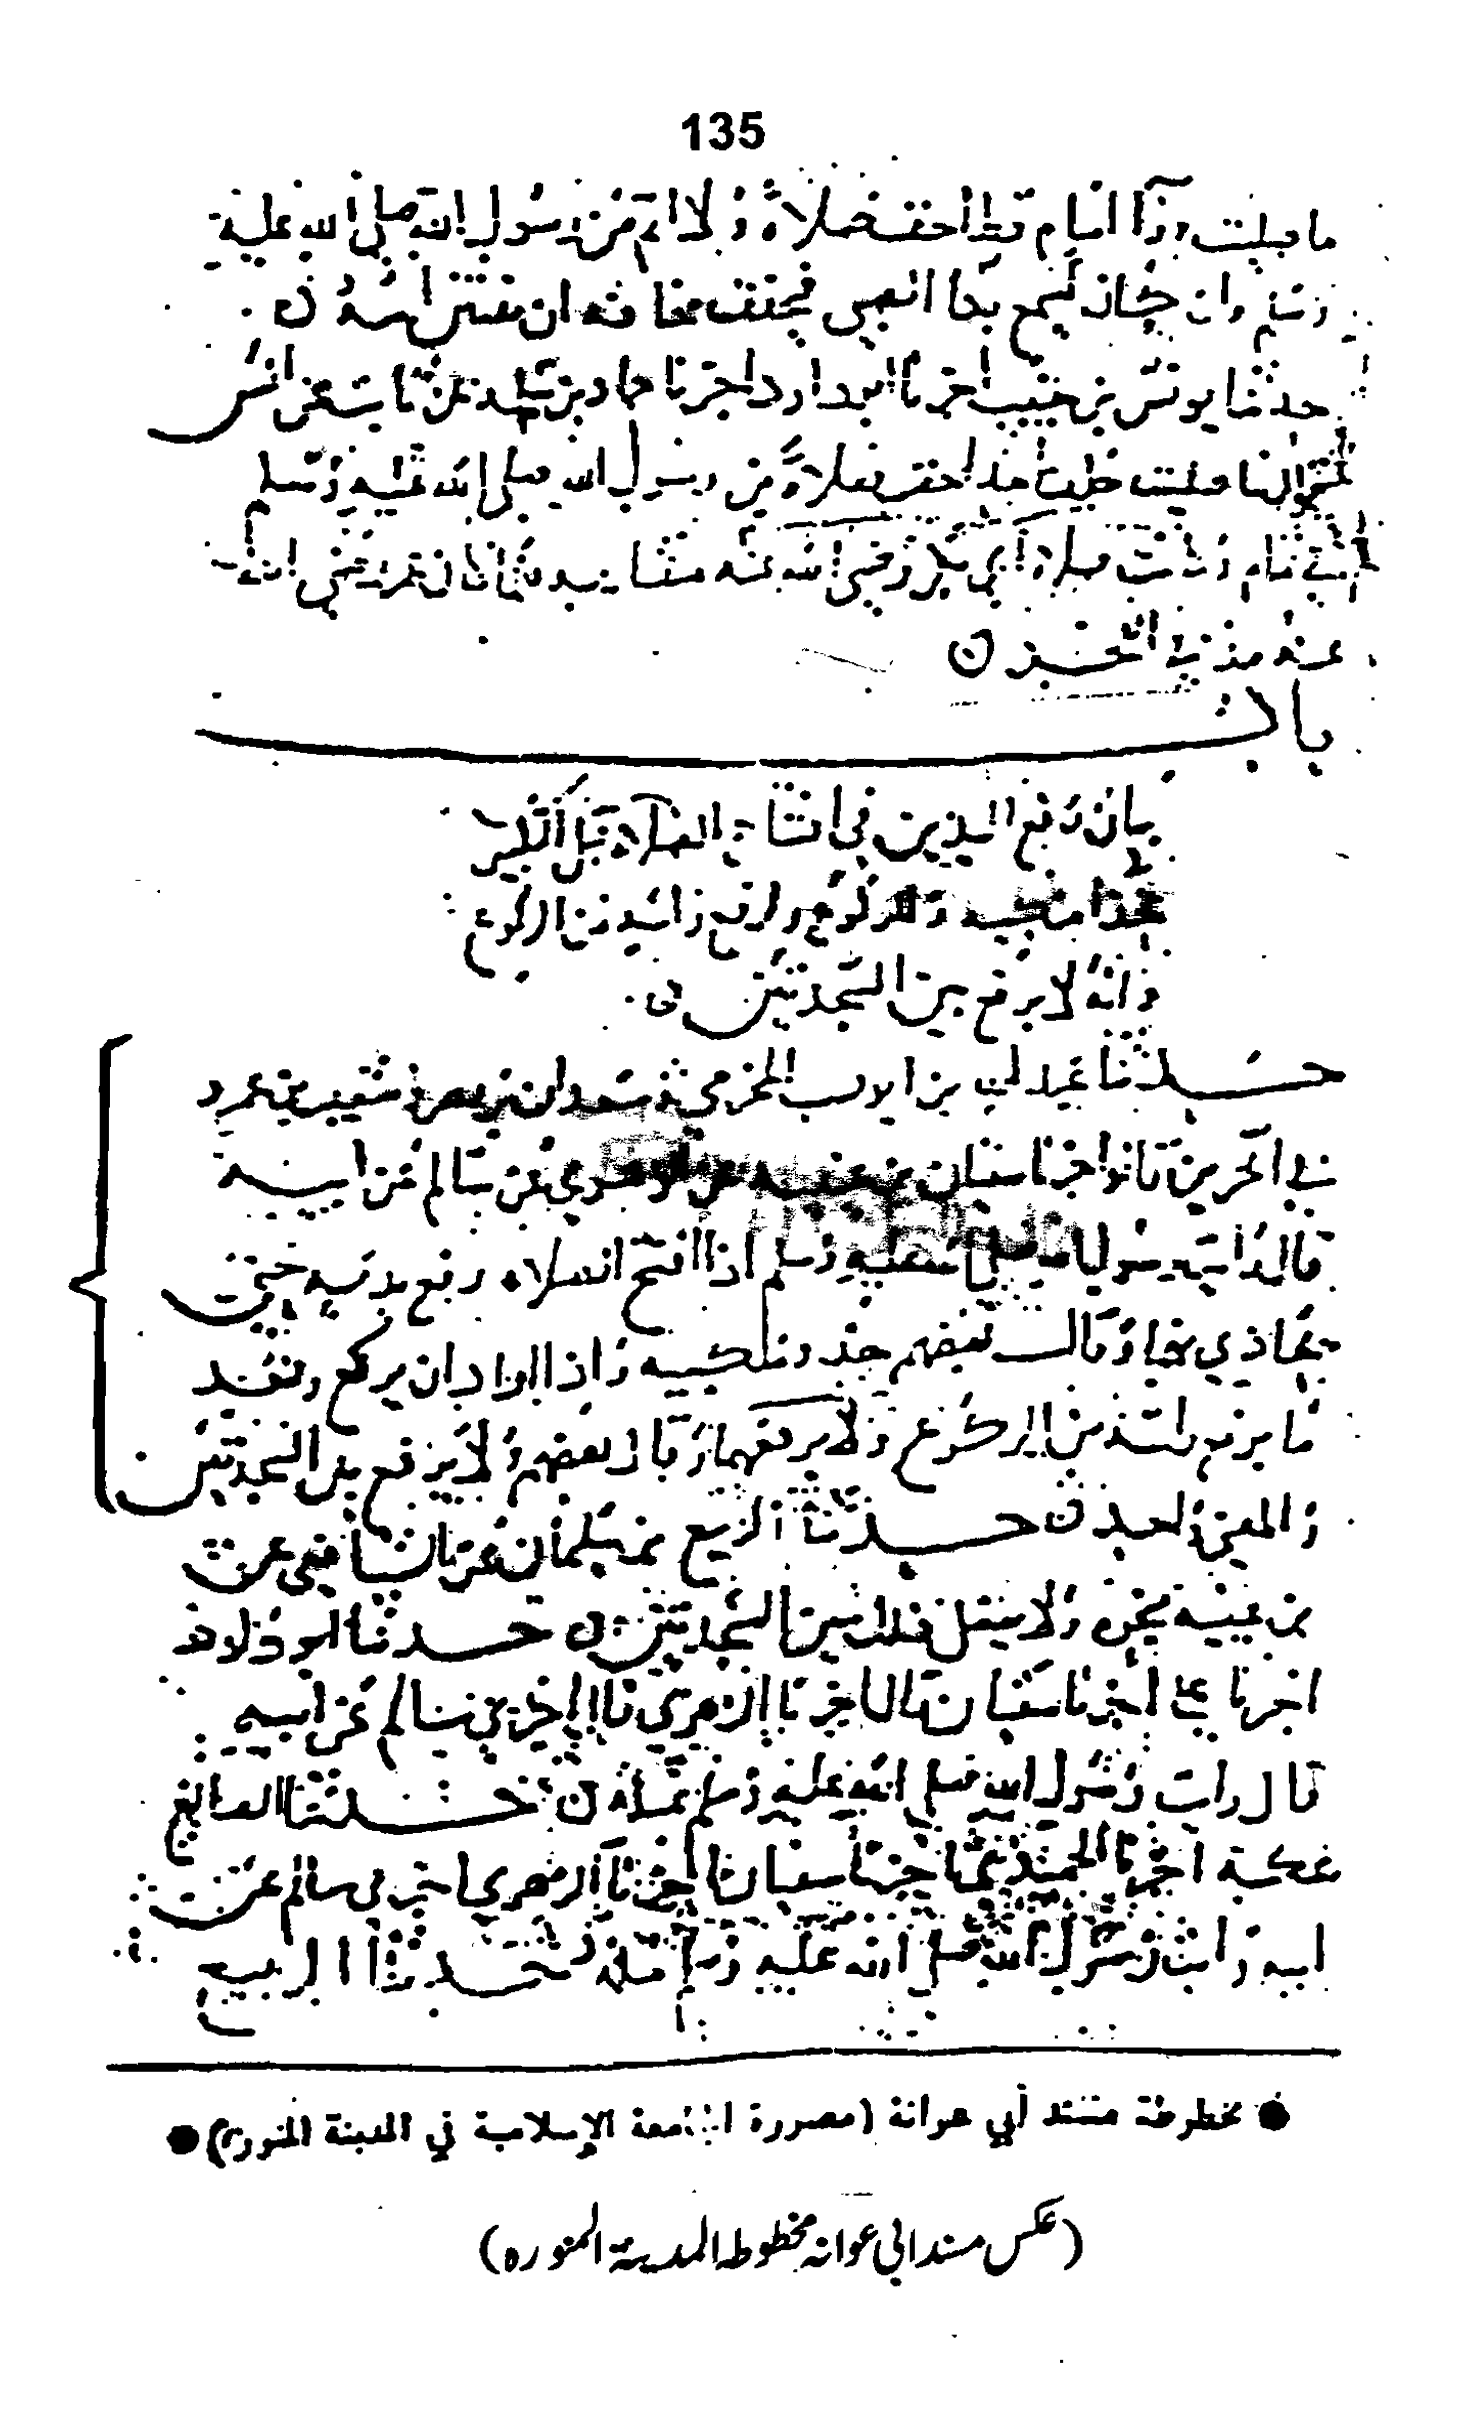 135
ما صليت وراا امام قط اخف صلاة ولا اتم من رسول الله صلى الله عليه
وسلم وان كان ليسمع بكا الصبي فيخفف مخافه ان تفتتن امه ن
حدثنا يونس بن حبيب اخبرنا ابو داود اخبرنا حماد بن سلمه عن ثابت عن انس
قال ما صليت خلف احد اخف صلاة من رسول الله صلى الله عليه وسلم
في تمام وكانت صلاه ابي بكر رضي الله عنه متقاربه فلما كان عمر رضي الله
عنه مد في الفجر ن
باب
بيان رفع اليدين في افتتاح الصلاه قبل التكبير
بحذا منكبيه وللركوع ولرفع راسه من الركوع
وانه لا يرفع بين السجدتين ن
حدثنا عبد الله بن ايوب المخزمي وسعدان بن نصر وشعيب بن عمرو
في اخرين قالوا اخبرنا سفيان بن عيينه عن الزهري عن سالم عن ابيه
قال رايت رسول الله صلى الله عليه وسلم اذا افتتح الصلاه رفع يديه حتى
يحاذي بهما وقال بعضهم حذو منكبيه واذا اراد ان يركع وبعد
ما يرفع راسه من الركوع ولا يرفعهما وقال بعضهم ولا يرفع بين السجدتين
والمعنى واحد ن حدثنا الربيع بن سليمان عن الشافعي عن
بن عيينه بنحوه ولا يفعل ذلك بين السجدتين ن حدثنا ابو داود
اخبرنا علي اخبرنا سفيان قال اخبرنا الزهري قال اخبرني سالم عن ابيه
قال رايت رسول الله صلى الله عليه وسلم بمثله ن حدثنا الصايغ
بمكة اخبرنا الحميدي اخبرنا سفيان اخبرنا الزهري اخبرني سالم عن
ابيه رايت رسول الله صلى الله عليه وسلم مثله حدثنا الربيع
● مخطوطة مسند أبي عوانة (مصورة الجامعة الإسلامية في المدينة المنورة) ●
(عکس مسند ابی عوانہ مخطوطہ المدینۃ المنورہ)